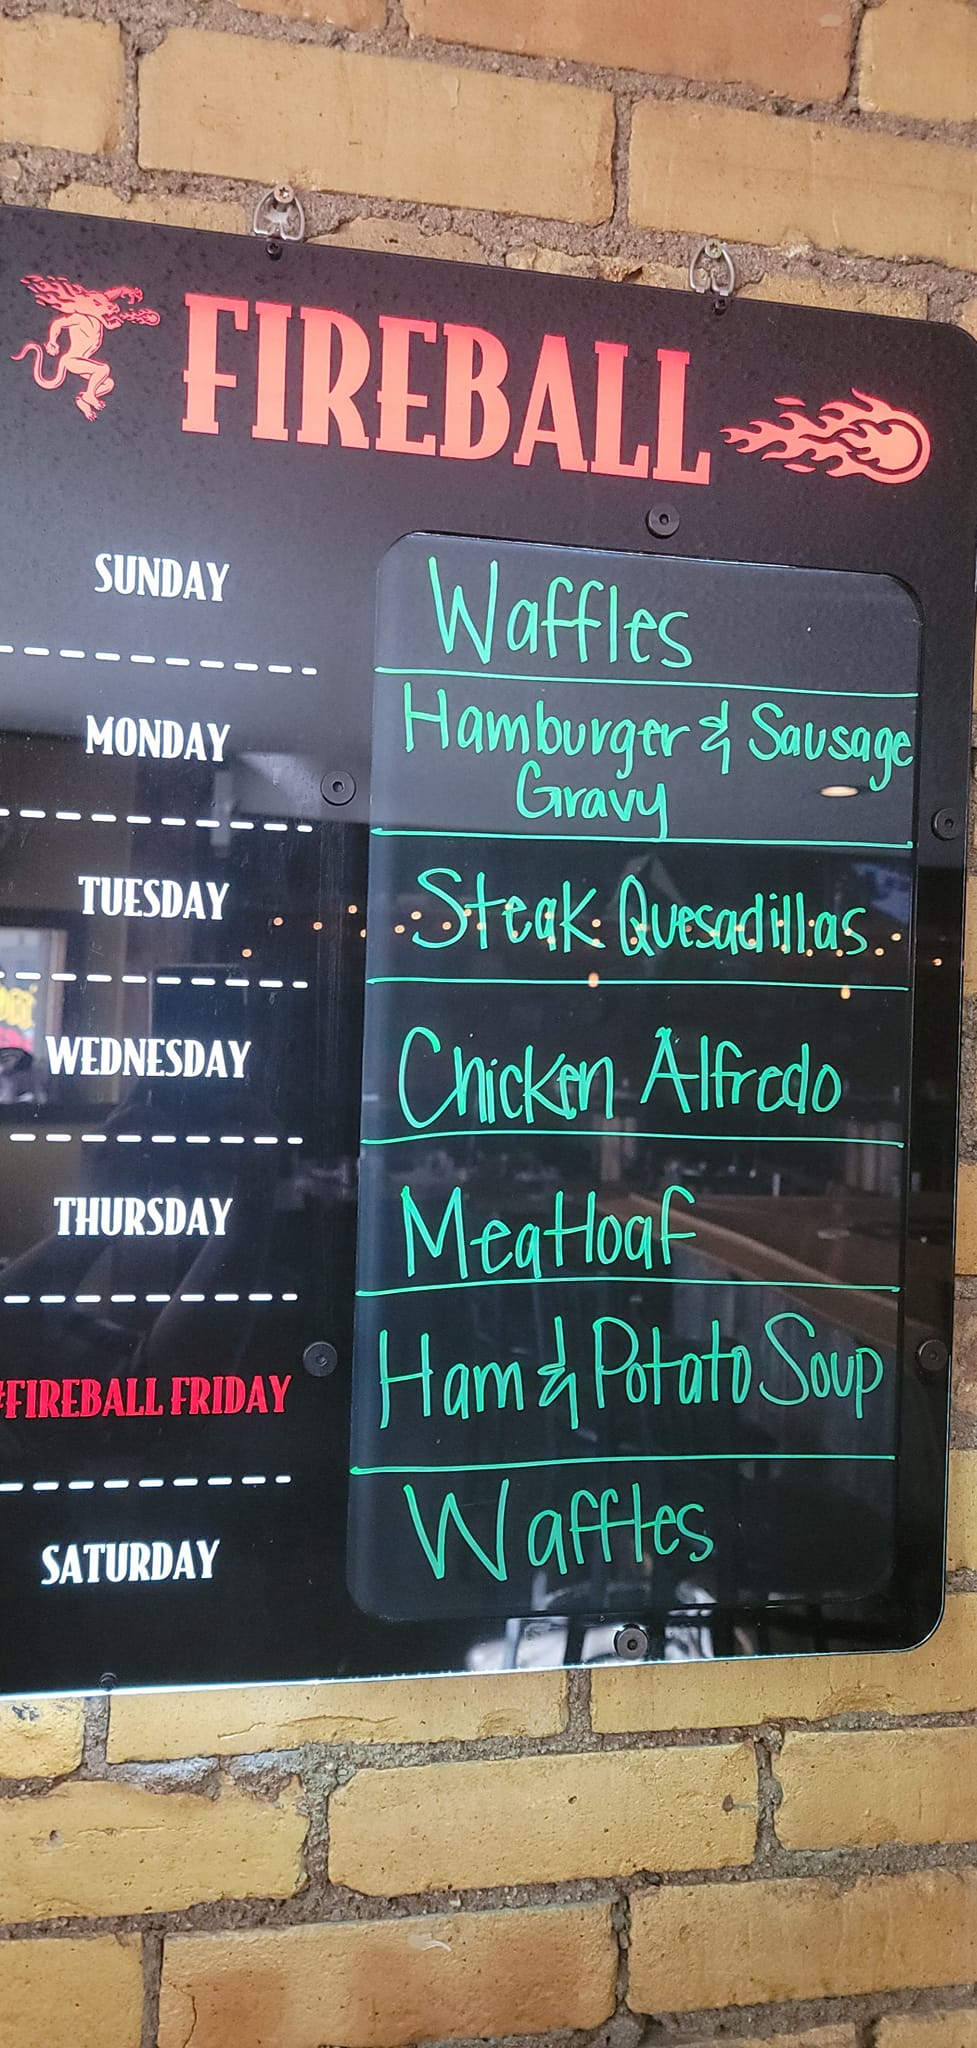 FIREBALL
SUNDAY Waffles
MONDAY Hamburger & Sausage
Gravy
TUESDAY Steak Quesadillas
WEDNESDAY Chicken Alfredo
THURSDAY Meatloaf
#FIREBALL FRIDAY Ham & Potato Soup
SATURDAY Waffles